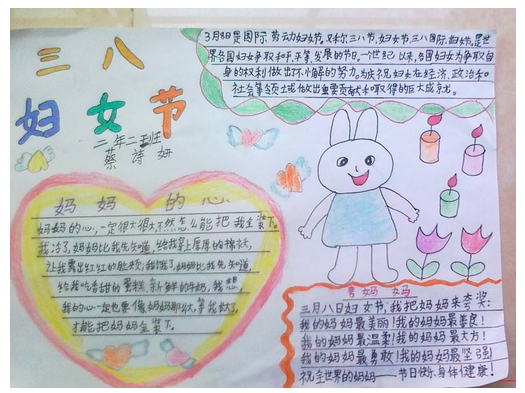 三八
妇女节
二年二班
蔡诗妍
3月8日是国际劳动妇女节,又称三八节,妇女节,三八国际妇女节。是世
界各国妇女争取和平、平等、发展的节日。一个世纪以来,各国妇女为争取自
身的权利做出了不懈的努力。为庆祝妇女在经济、政治和
社会等领域做出重要贡献和取得的巨大成就。
妈妈的心
妈妈的心,一定很大很大不然怎么能把我全装下。
我冷了,妈妈比我先知道,给我穿上厚厚的棉袄,
让我露出红红的脸颊,我饿了,妈妈比我先知道,
给我吃香甜的蛋糕、新鲜的牛奶,我想,
我的心一定也要像妈妈那么大,等我长大了,
才能把妈妈全装下。
夸妈妈
三月八日妇女节,我把妈妈来夸奖:
我的妈妈最美丽!我的妈妈最善良!
我的妈妈最温柔!我的妈妈最大方!
我的妈妈最勇敢!我的妈妈最坚强!
祝全世界的妈妈——节日快乐,身体健康!